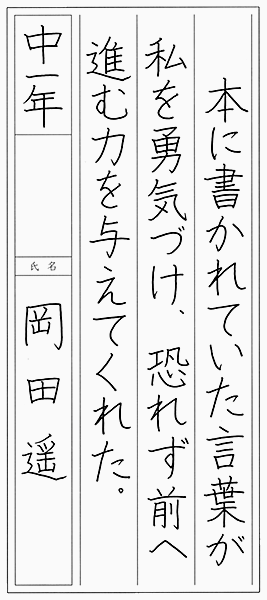 本に書かれていた言葉が
私を勇気づけ、恐れず前へ
進む力を与えてくれた。
中一年
氏名
岡田遥